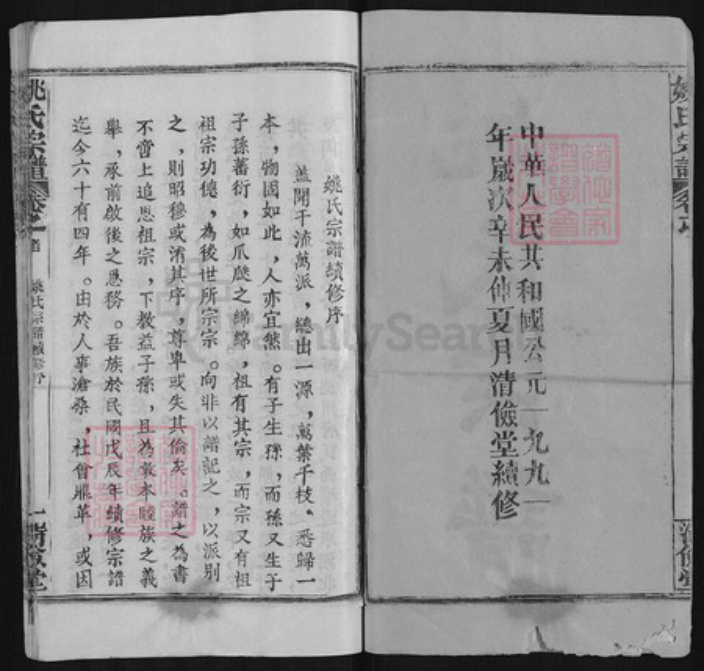 中華人民共和國公元一九九一
年歲次辛未仲夏月清儉堂續修
姚氏宗譜續修序
蓋聞千流萬派，總出一源，萬葉千枝、悉歸一
本，物固如此，人亦宜然。有子生孫，而孫又生子
子孫蕃衍，如瓜瓞之綿綿，祖有其宗，而宗又有祖
祖宗功德，為後世所宗宗。向非以譜記之，以派別
之，則昭穆或淆其序　尊卑或失其倫矣。譜之為書
不啻上追思祖宗，下教益子孫，且為敦本睦族之義
舉，承前啟後之急務。吾族於民國戊辰年續修宗譜
迄今六十有四年。由於人事滄桑，社會雕革，或因
姚氏宗譜
卷
首
姚氏宗譜續修序
一
清儉堂
姚氏宗譜
卷
清儉堂
FamilySearch